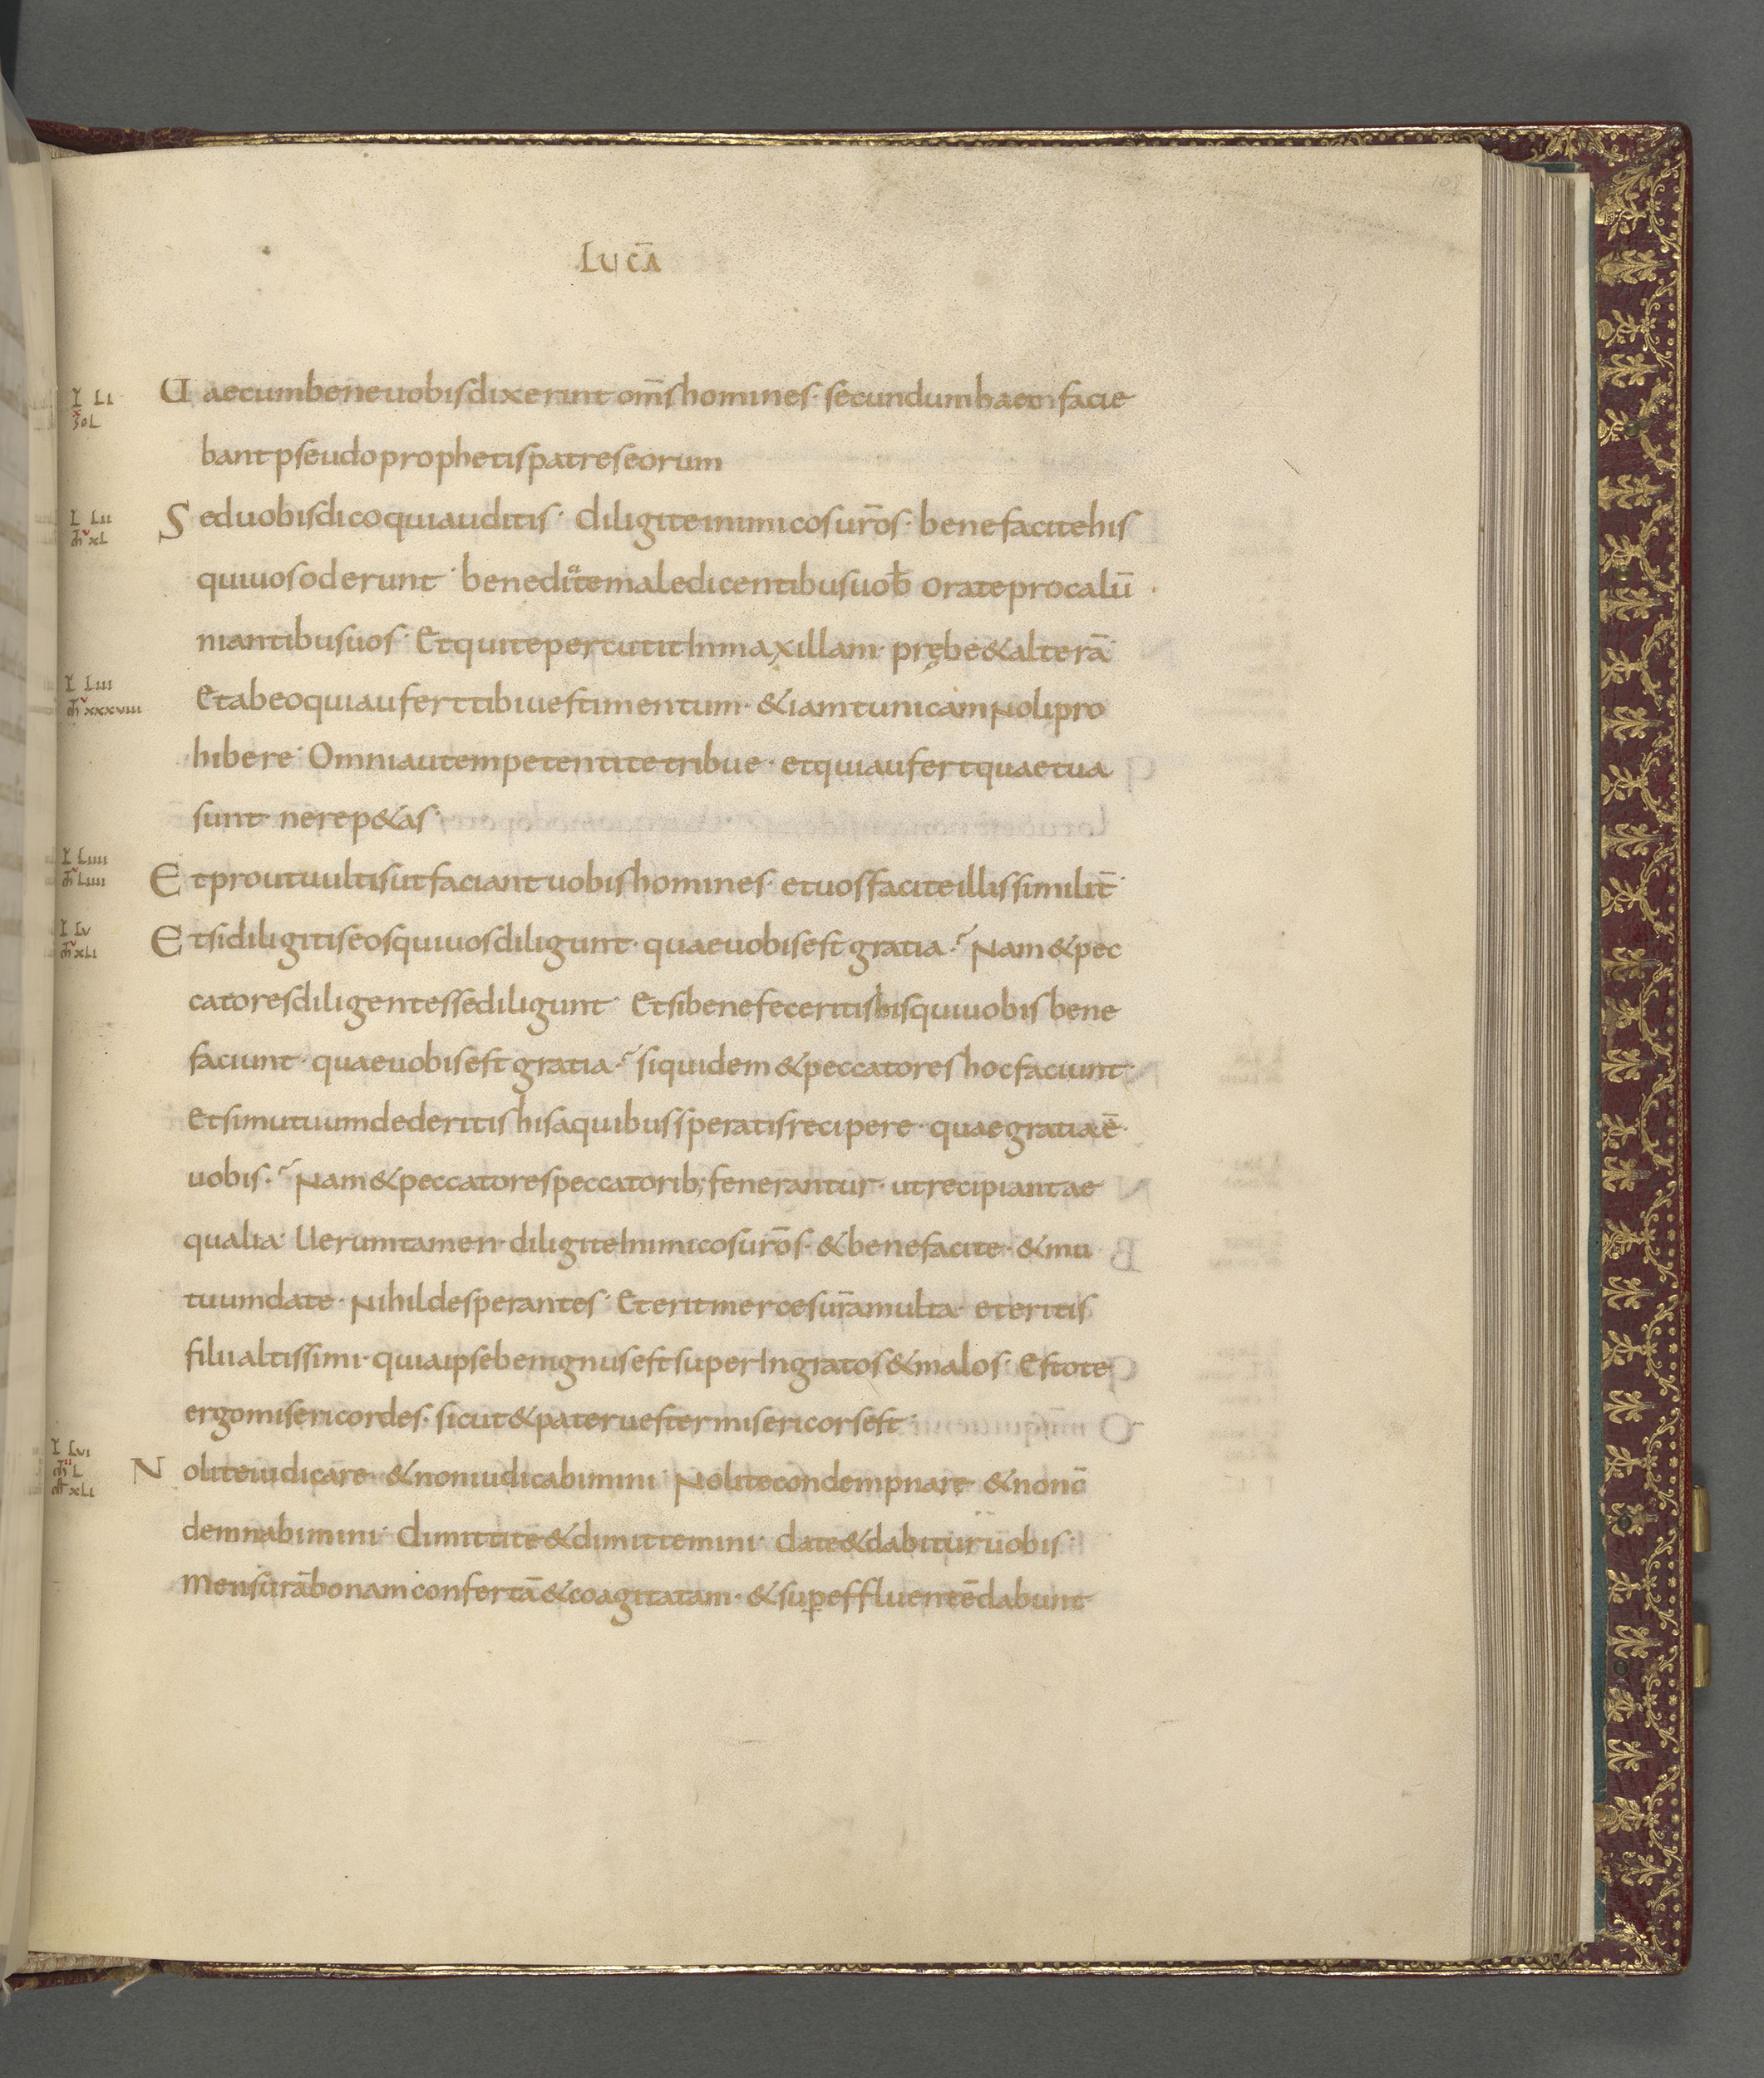 109
LUCĀ
L LI
X
SOL
Uaecumbeneuobisdixerint om̄shomines· secundumhaecfacie
bantpseudoprophetispatreseorum
L LII
m̄ V XL
Seduobisdicoquiauditis· diligiteinimicosur̄os· benefacitehis
quiuosoderunt· benedicitemaledicentibusuob̄ orateprocalū
niantibusuos· EtquitepercutitInmaxillam· prębe&alterā
L LIII
m̄ V XXXVIII
Etabeoquiauferttibiuestimentum· &iamtunicamNolipro
hibere· Omniautempetentitetribue· etquiaufertquaetua
sunt nerep&as·
L LIIII
m̄ V LIIII
Etproutuultisutfaciantuobishomines· etuosfaciteillissimilit̄·
L LV
m̄ V XLI
Etsidiligitiseosquiuosdiligunt· quaeuobisest gratia·? Nam&pec
catoresdiligentessediligunt· Etsibenefeceritishisquiuobis bene
faciunt· quaeuobisest gratia·? siquidem&peccatoreshocfaciunt·
Etsimutuumdederitis hisaquibussperatisrecipere· quaegratiaē·
uobis·? Nam&peccatorespeccatorib; fenerantur· utrecipiantae
qualia· Uerumtamen·diligiteInimicosur̄os· &benefacite· &mu
tuumdate· Nihildesperantes· Eteritmercesur̄amulta· eteritis
filiialtissimi·quiaipsebenignusestsuperIngratos&malos· Estote
ergomisericordes· sicut&pateruestermisericorsest·
L LVI
m̄ II L
m̄ XLI
Noliteiudicare· &noniudicabimini· Nolitecondempnare· &nonc̄
demnabimini· dimittite&dimittemini· date&dabituruobis·
mensurābonamconfertā&coagitatam· &supeffluentēdabunt